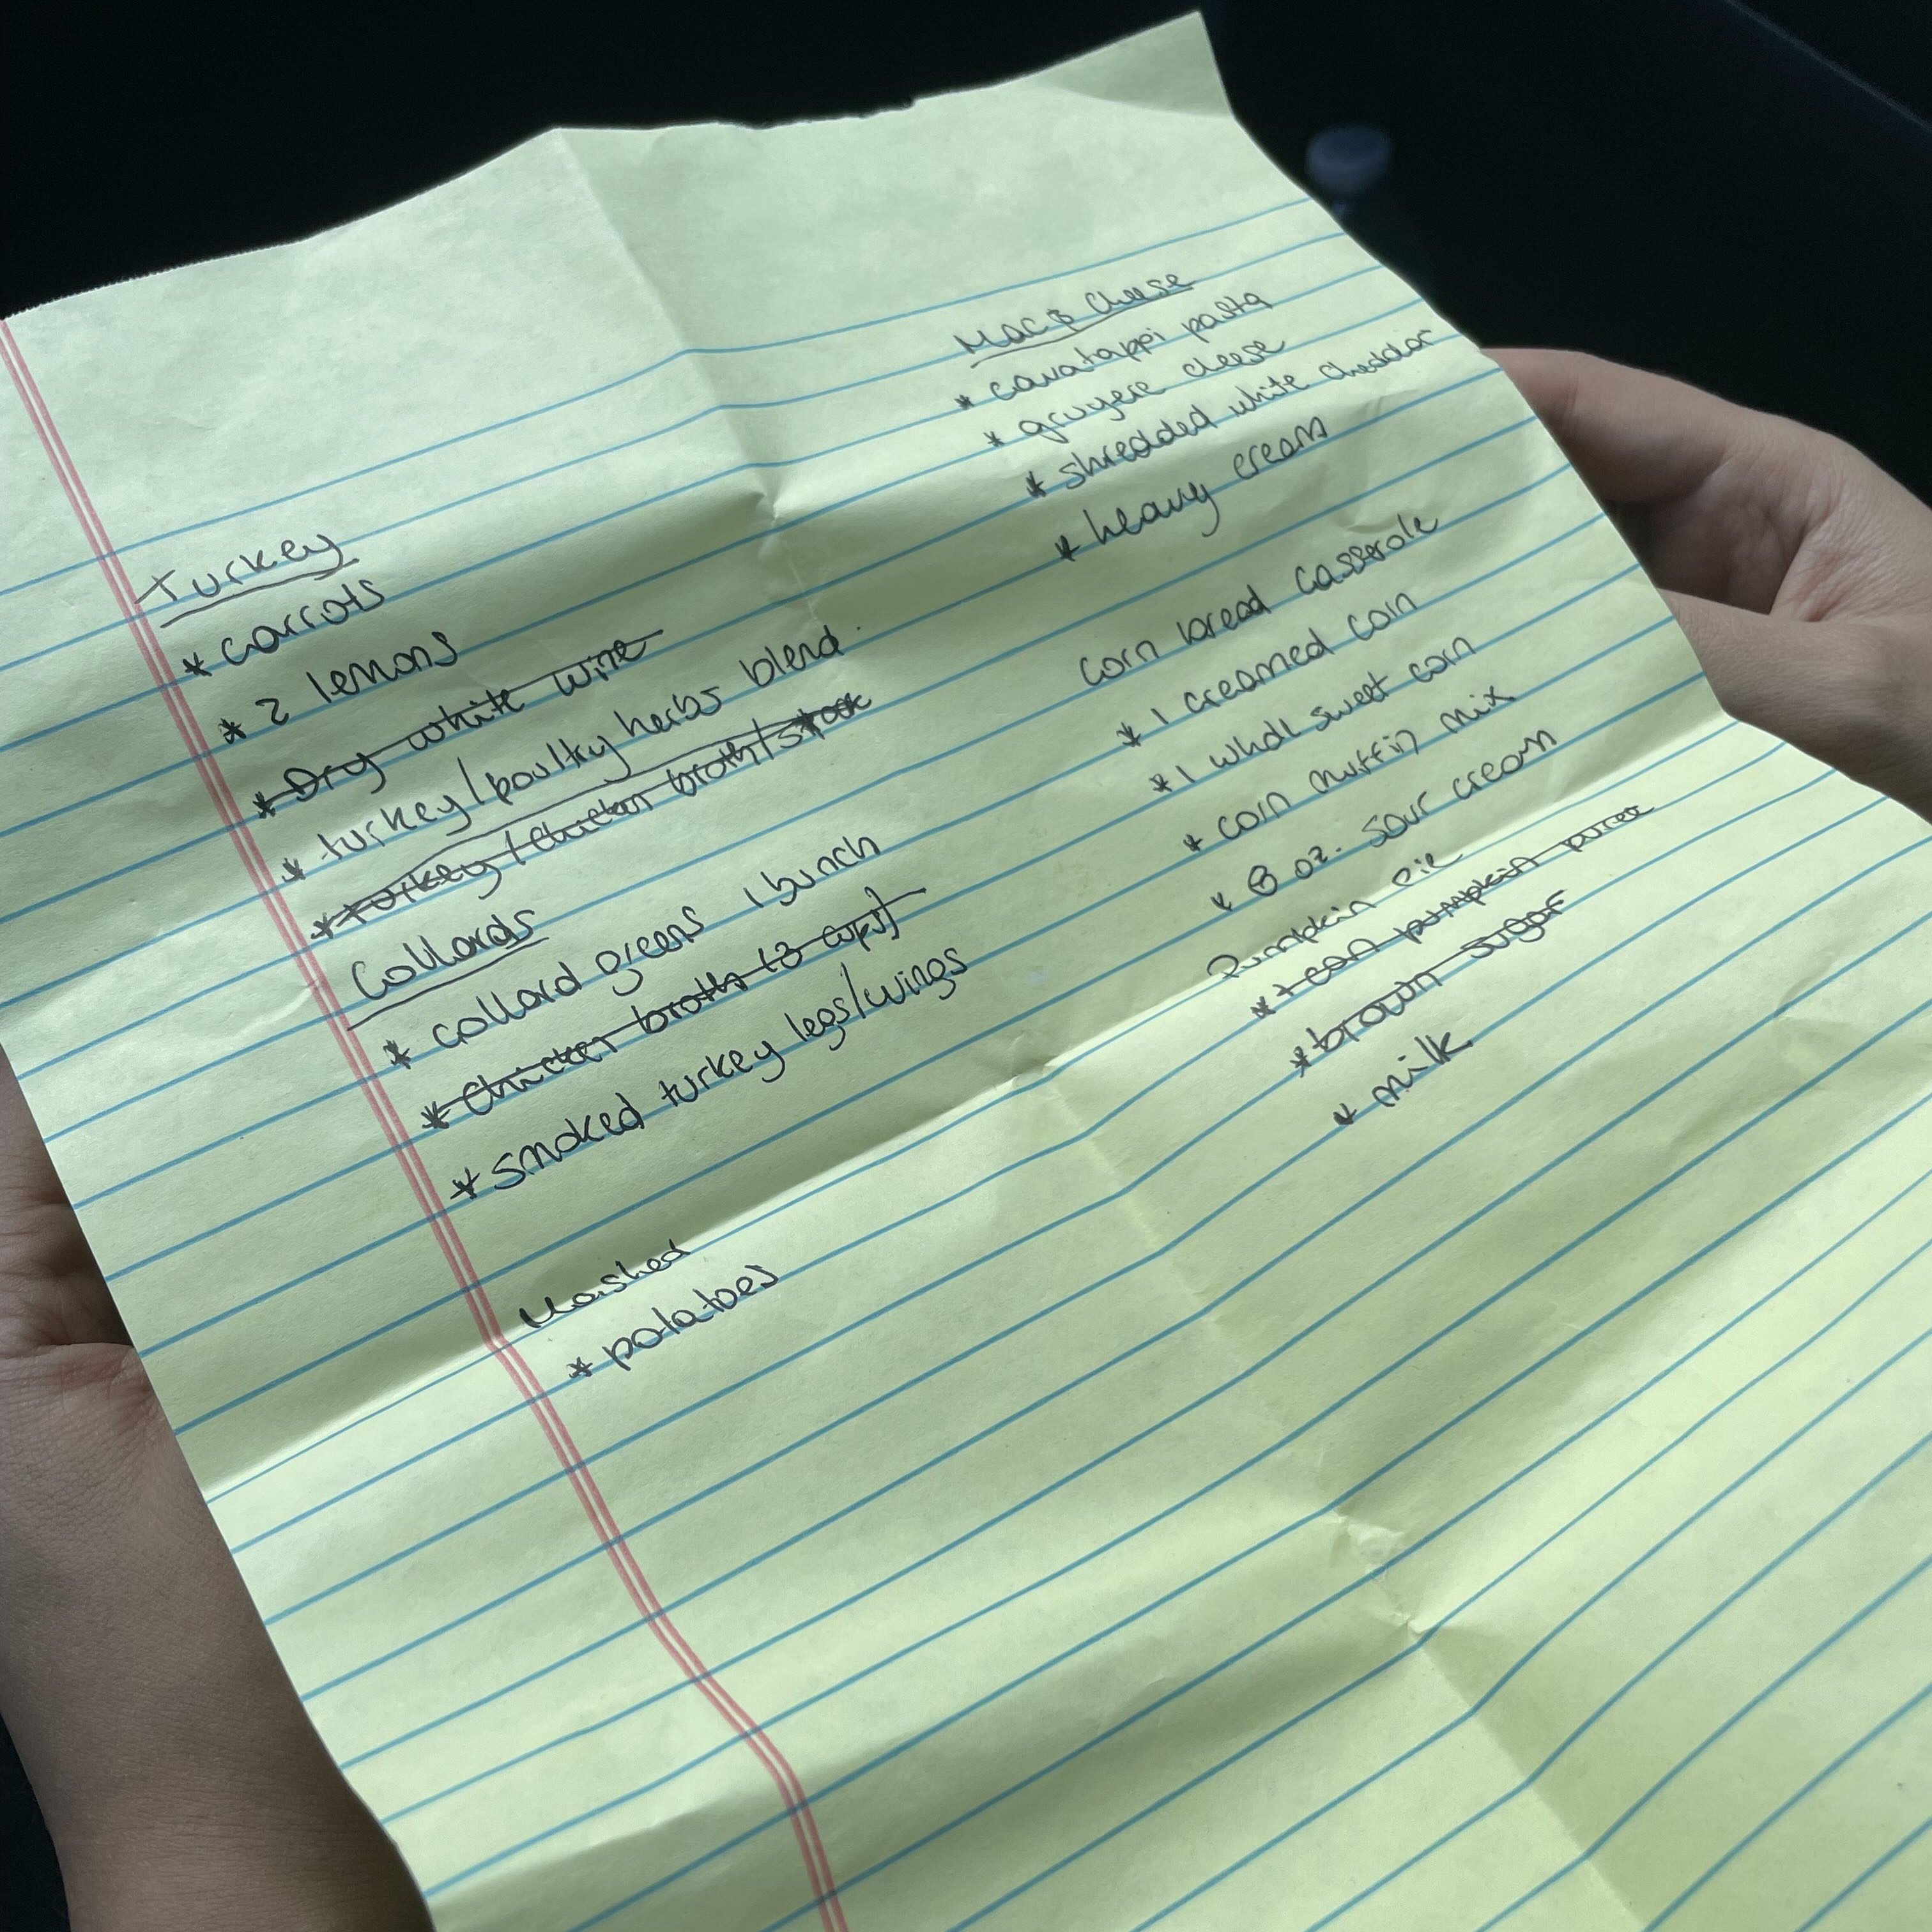 Turkey
* carrots
* 2 lemons
* Dry white wine
* turkey/poultry herbs blend
* turkey/chicken broth/stock
Collards
* collard greens 1 bunch
* Chicken broth (3 cups)
* smoked turkey legs/wings
Mashed
* potatoes
Mac & Cheese
* cavatappi pasta
* gruyere cheese
* shredded white cheddar
* heavy cream
Corn bread casserole
* 1 creamed corn
* 1 whol sweet corn
* corn muffin mix
* 8 oz. sour cream
Pumpkin pie
* 1 can pumpkin puree
* brown sugar
* milk